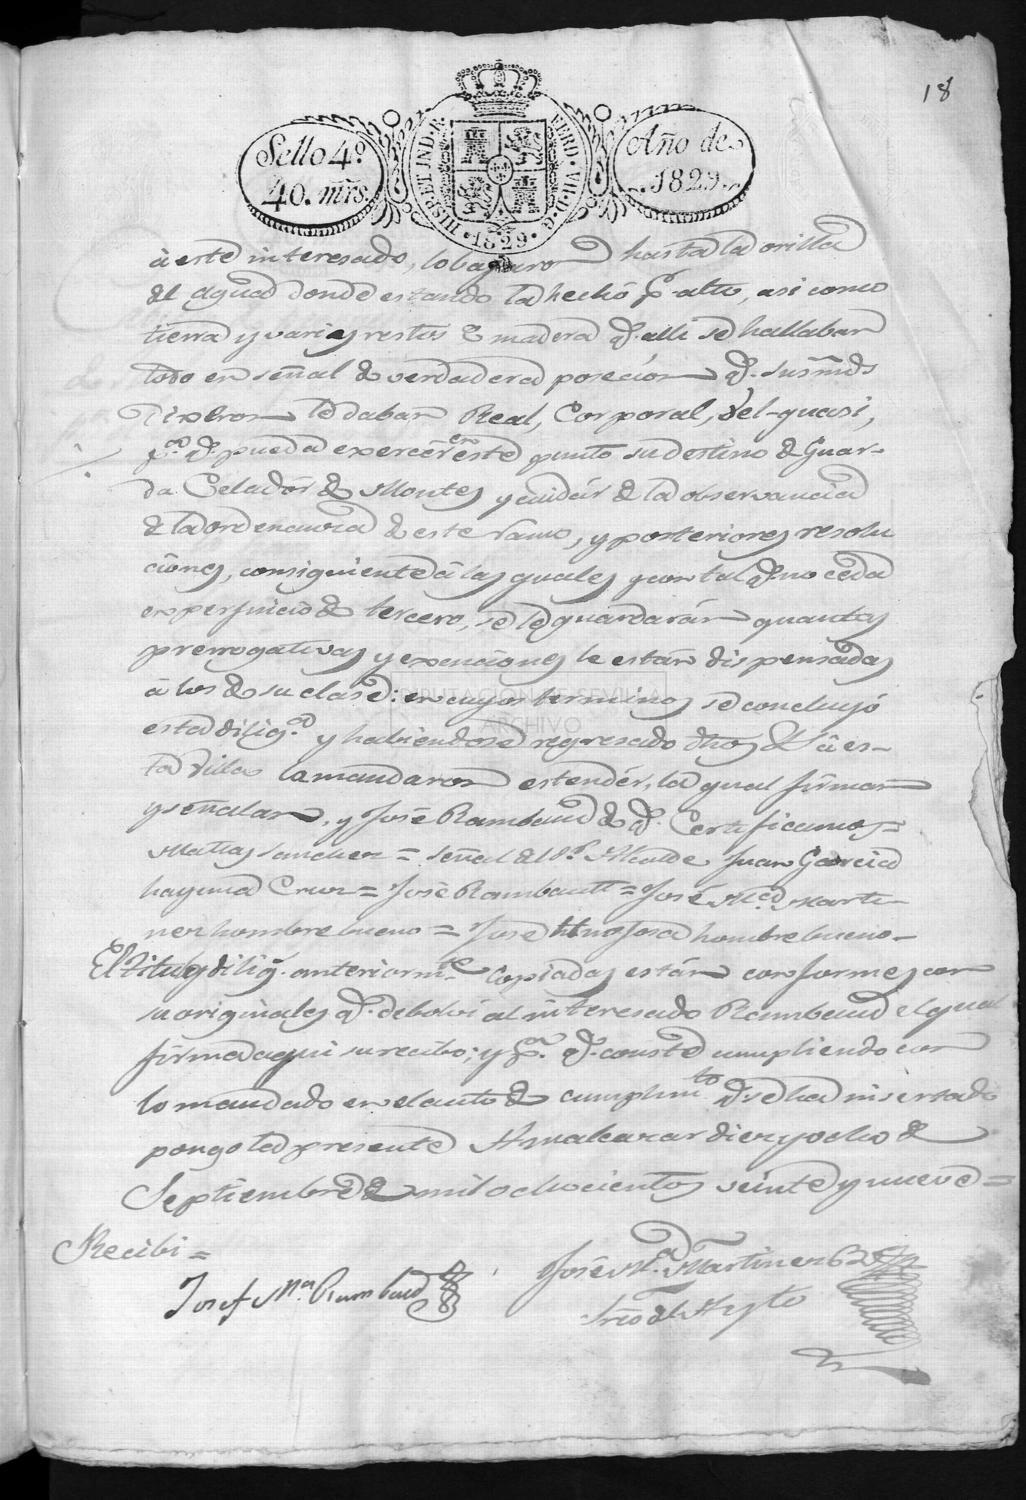 18
Sello 4º
40. mrs.
HISP. ET IND. R.
FERD. VII. D. G.
1829
Año de
1829.
à este interesado, lo bajaron hasta la orilla
del agua donde estando la hechó pr. alto, asi como
tierra y varios restos de madera q. alli se hallaban
todo en señal de verdadera posecion q. sus mds
Dixeron le daban Real, Corporal, Vel-quasi,
pa. q. pueda exercér en este punto su destino de Guar-
da Celadór de Montes y cuidár de la observancia
de la ordenanza de este ramo, y posteriores resolu
ciones, consiguiente â las quales y con tal q. no ceda
en perjuicio de tercero, se le guardarán quantas
prerrogativas y exenciones le están dispensadas
â los de su clase: en cuyos terminos se concluyó
esta diliga. y habiendose regresado dhos â es-
ta Villa la mandaron estendér, la qual firman
y señalan, y José Rambaud de q. Certificamos=
Matias Sanchez = señal del Sr. Alcalde Juan Garcia
hay una Cruz = José Rambautt = José Ma. Marti-
nez hombre bueno = José Hinojosa hombre bueno-
El Titu. y dilig. anteriormte. Copiadas están conformes con
su originales q. debolví al interesado Rambaud el qual
firma aqui su recibo; y pa. q. conste cumpliendo con
lo mandado en el auto de cumplimto q. se ha insertado
pongo la presente Aznalcazar diez y ocho de
Septiembre de mil ochocientos veinte y nueve =
Recibi =
Josef Ma. Rambaud
José Ma. Martinez
Srio del Aytto
DIPUTACION DE SEVILLA
ARCHIVO